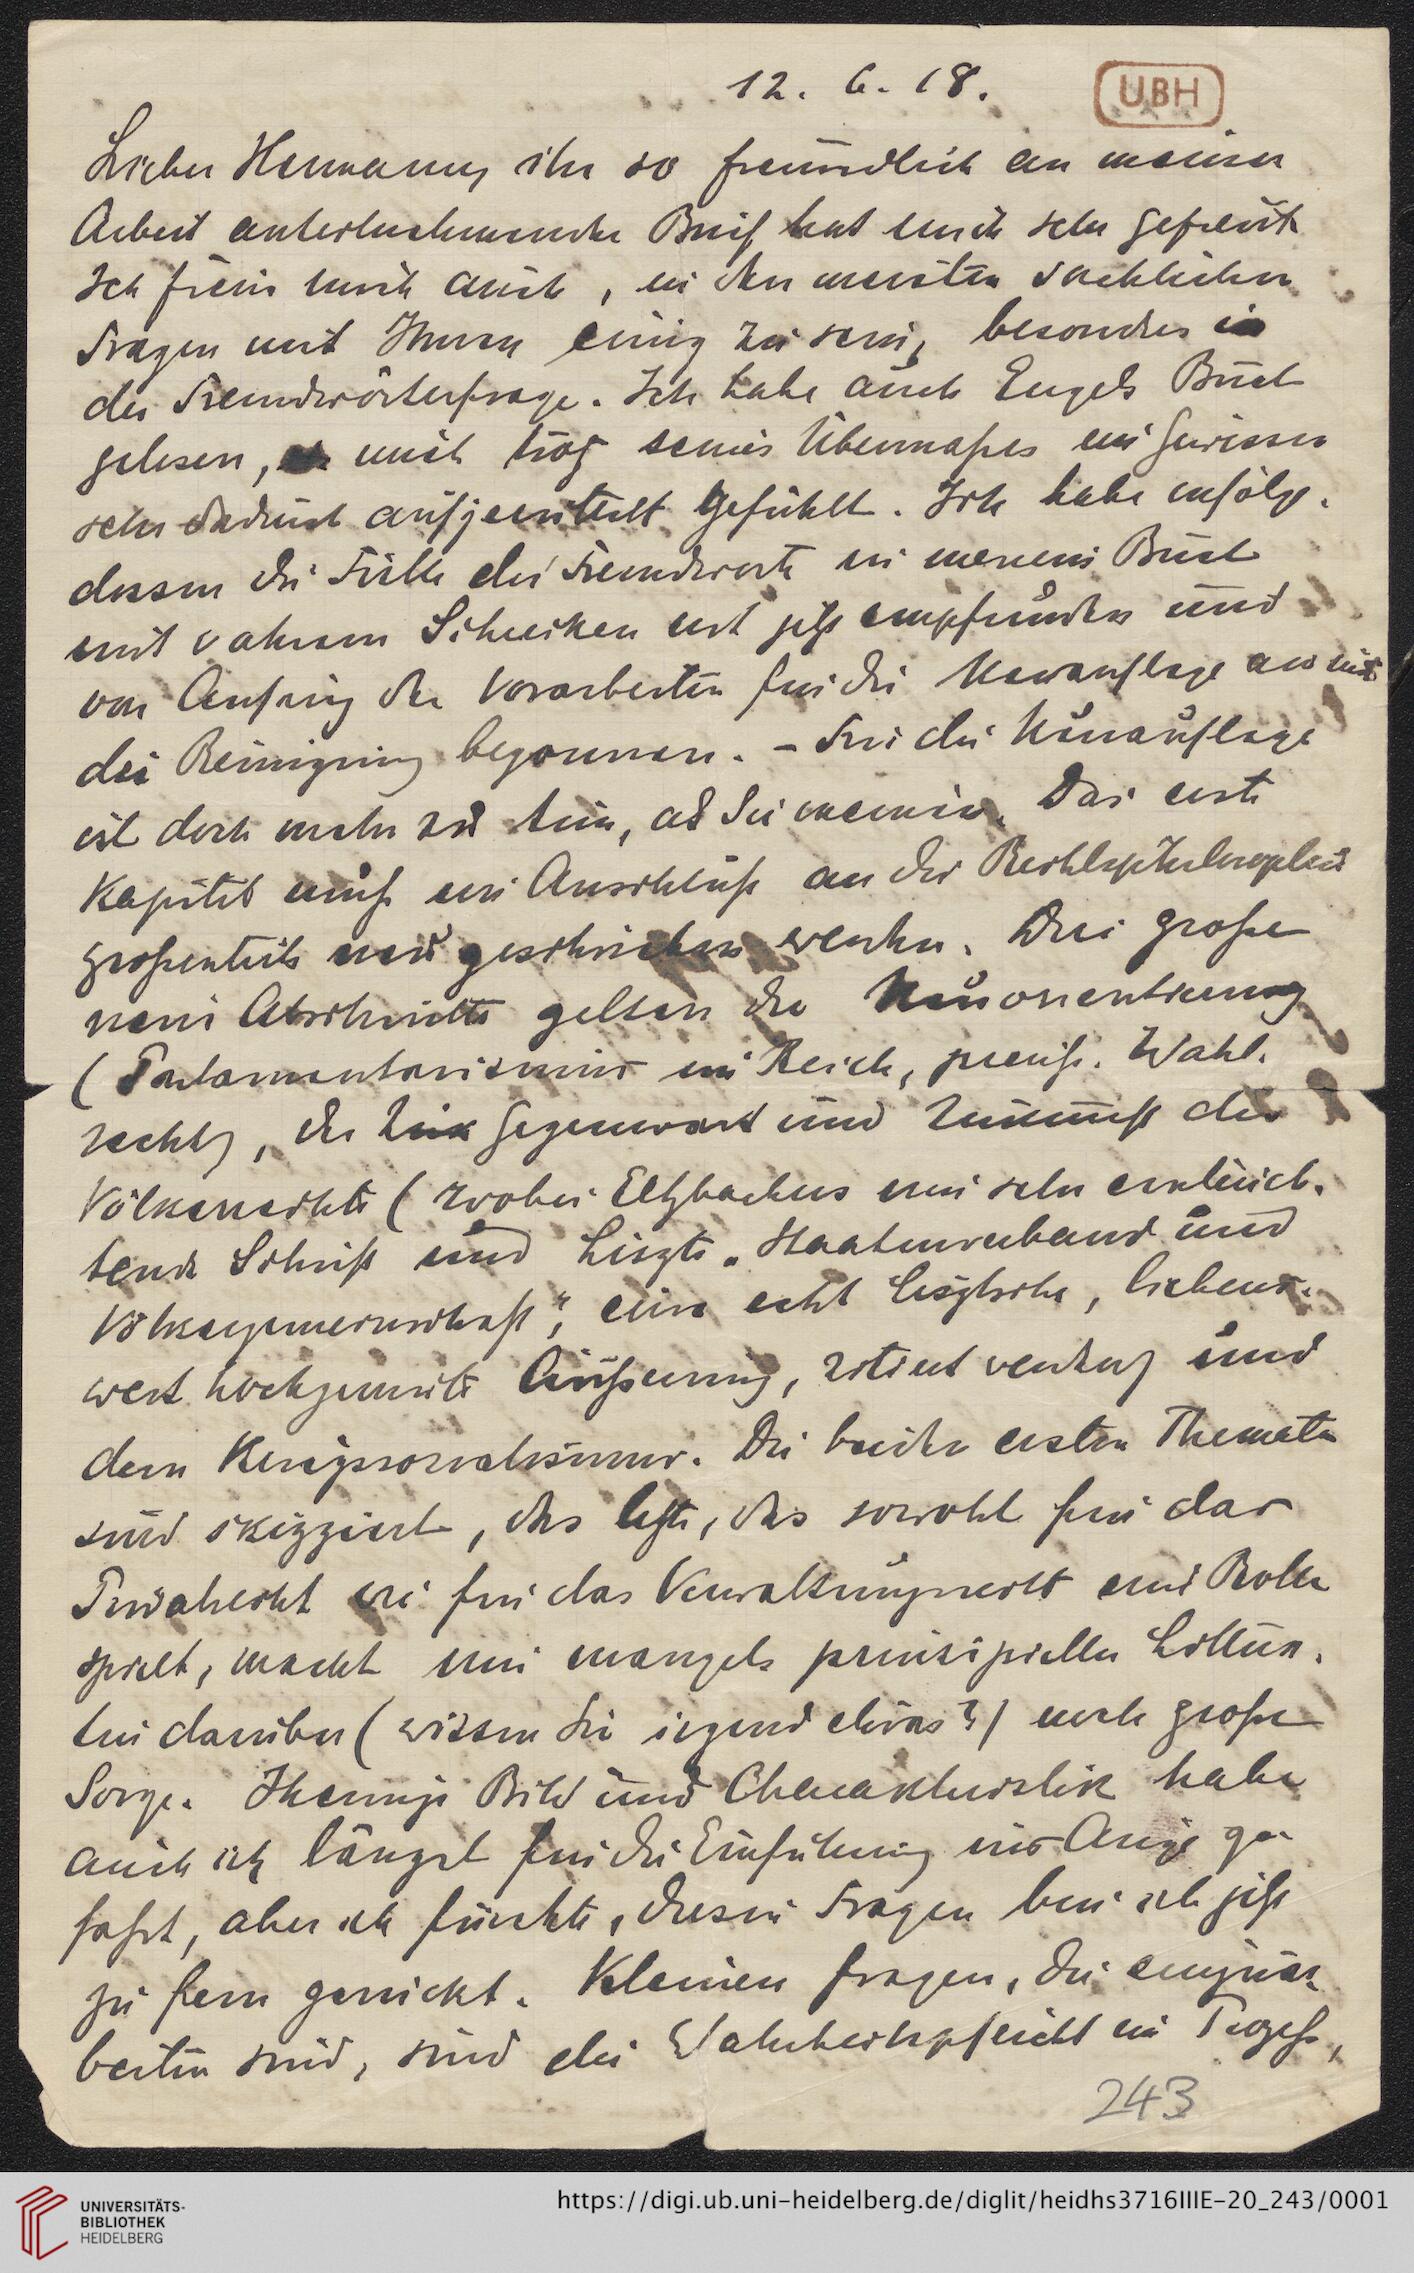 12. 6. 18.
UBH
Lieber Hermann, Ihr so freundlich an meiner
Arbeit anteilnehmender Brief hat mich sehr gefreut.
Ich freue mich auch, in den meisten sachlichen
Fragen mit Ihnen einig zu sein, besonders in
der Fremdwörterfrage. Ich habe auch Engels Buch
gelesen, mich trotz seines Übermaßes im Gewissen
sehr dadurch aufgerüttelt gefühlt. Ich habe infolge-
dessen die Fülle der Fremdworte in meinem Buch
mit wahrem Schrecken erst jetzt empfunden und
von Anfang der Vorarbeiten für die Neuauflage an mit
der Reinigung begonnen. – Für die Neuauflage
ist doch mehr zu tun, als Sie meinen. Das erste
Kapitel muß im Anschluß an die Rechtsphilosophie
großenteils neu geschrieben werden. Drei große
neue Abschnitte gelten der Neuorientierung
(Parlamentarismus im Reich, preuß. Wahl-
recht), der Gegenwart und Zukunft des
Völkerrechts (wobei Eltzbachers mir sehr einleuch-
tende Schrift und Liszts „Staatenverband und
Völkergemeinschaft", eine echt Lisztsche, liebens-
wert hochgemute Äußerung, zitiert werden) und
dem Kriegssozialismus. Die beiden ersten Themata
sind skizziert, das letzte, das sowohl für das
Privatrecht wie für das Verwaltungsrecht eine Rolle
spielt, macht mir mangels prinzipieller Littera-
tur darüber (wissen Sie irgend etwas?) noch große
Sorge. Iherings Bild und Charakteristik habe
auch ich längst für die Einführung ins Auge ge-
faßt, aber ich fürchte, diesen Fragen bin ich jetzt
zu fern gerückt. Kleinere Fragen, die einzuar-
beiten sind, sind die Wahrheitspflicht im Prozeß,
243
UNIVERSITÄTS-
BIBLIOTHEK
HEIDELBERG
https://digi.ub.uni-heidelberg.de/diglit/heidhs3716IIIE-20_243/0001